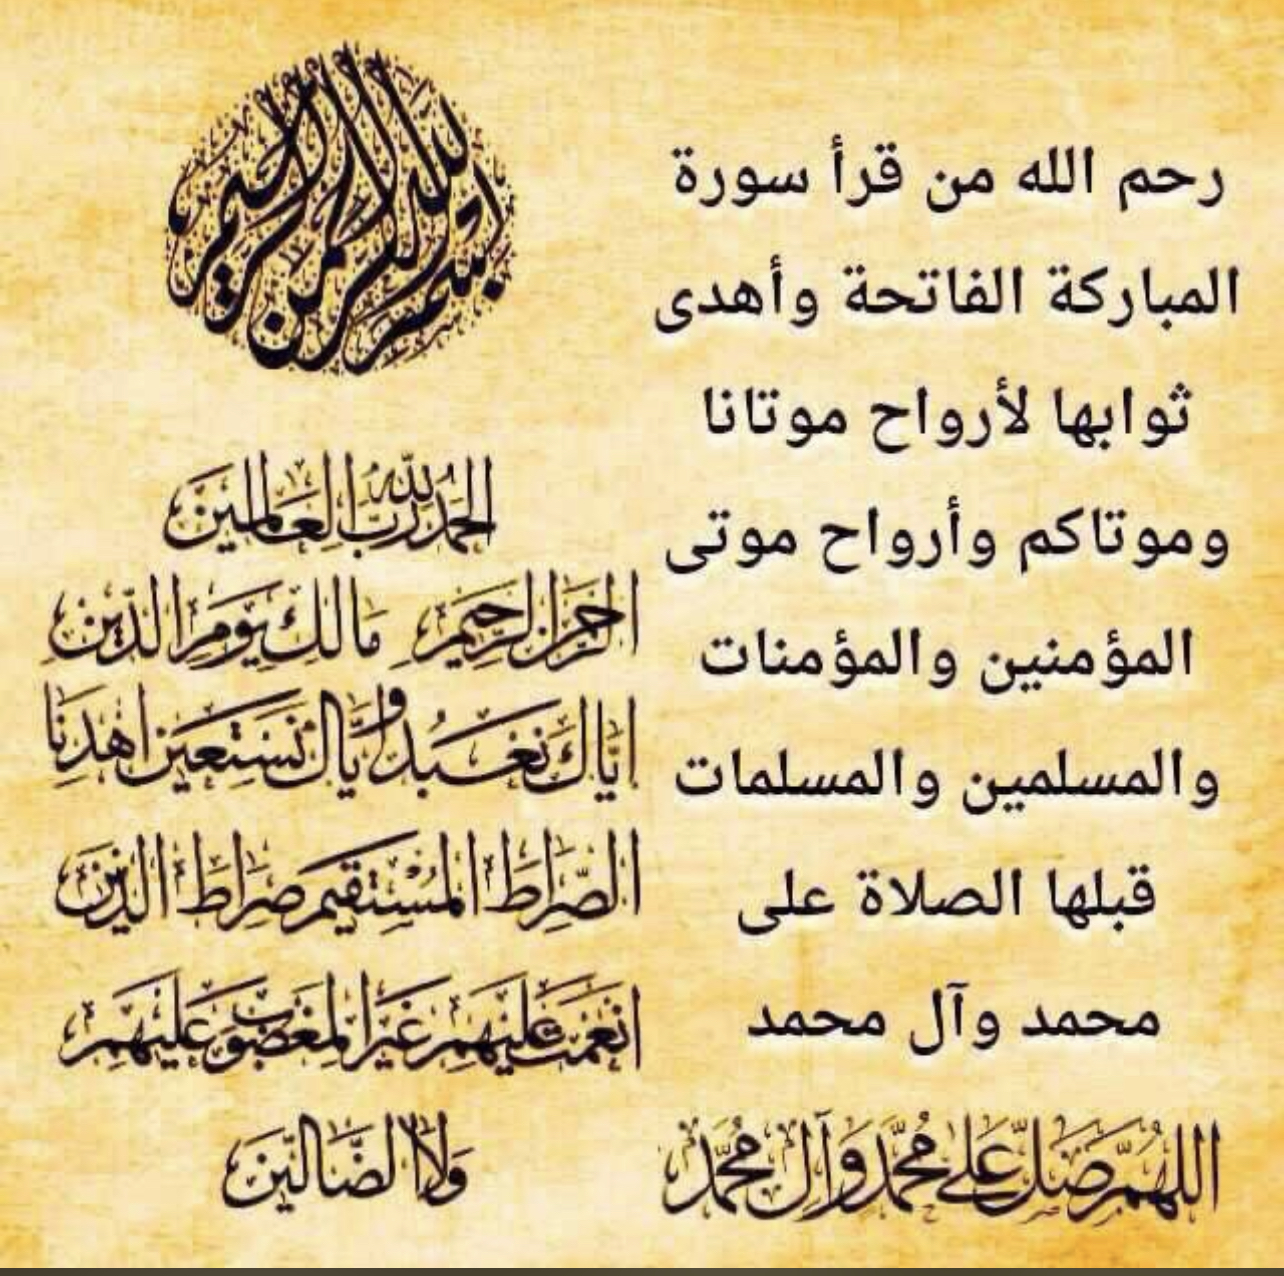 رحم الله من قرأ سورة
المباركة الفاتحة وأهدى
ثوابها لأرواح موتانا
وموتاكم وأرواح موتى
المؤمنين والمؤمنات
والمسلمين والمسلمات
قبلها الصلاة على
محمد وآل محمد
اللهم صل على محمد وآل محمد
بسم الله الرحمن الرحيم
الحمد لله رب العالمين
الرحمن الرحيم مالك يوم الدين
اياك نعبد واياك نستعين اهدنا
الصراط المستقيم صراط الذين
انعمت عليهم غير المغضوب عليهم
ولا الضالين